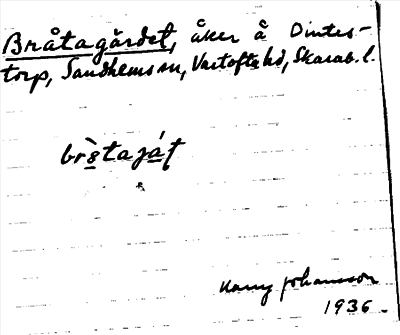 Bråtagärdet, åker å Dintes-
torp, Sandhems sn, Vartofta hd, Skarab. l.
Harry Johansson
1936.